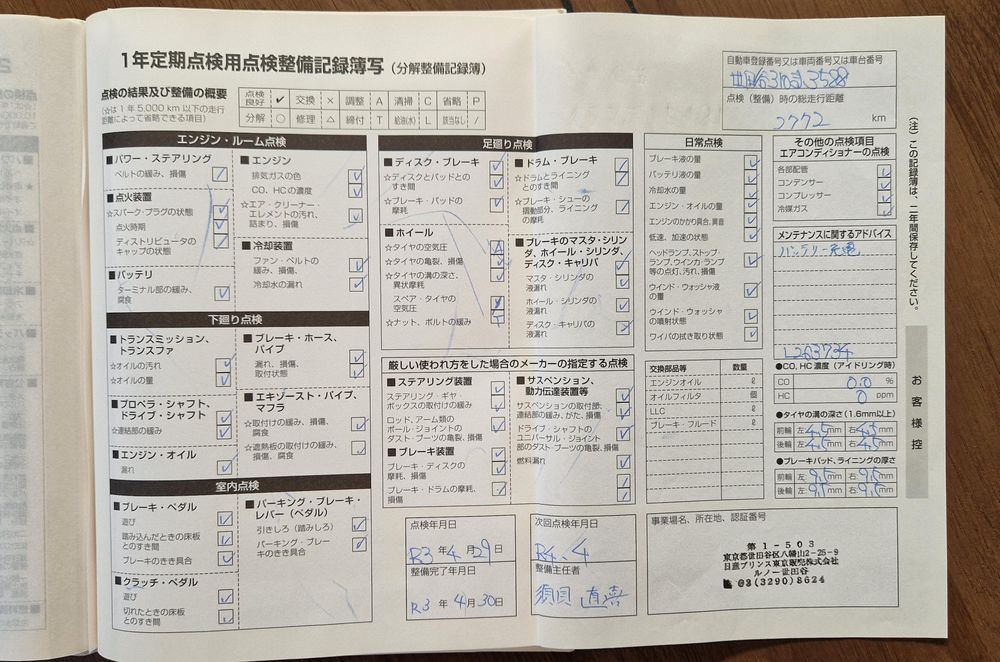 1年定期点検用点検整備記録簿写（分解整備記録簿）
点検の結果及び整備の概要
（☆は1年5,000km以下の走行
距離によって省略できる項目）
点検良好 ✓ 交換 × 調整 A 清掃 C 省略 P
分解 ○ 修理 △ 締付 T 給油(水) L 該当なし /
自動車登録番号又は車両番号又は車台番号
点検（整備）時の総走行距離
2772 km
（注）この記録簿は、二年間保存してください。
お客様控
エンジン・ルーム点検
■パワー・ステアリング
ベルトの緩み、損傷
■点火装置
☆スパーク・プラグの状態
点火時期
ディストリビュータの
キャップの状態
■バッテリ
ターミナル部の緩み、
腐食
■エンジン
排気ガスの色
CO、HCの濃度
☆エア・クリーナー・
エレメントの汚れ、
詰まり、損傷
■冷却装置
ファン・ベルトの
緩み、損傷、
冷却水の漏れ
下廻り点検
■トランスミッション、
トランスファ
☆オイルの汚れ
☆オイルの量
■プロペラ・シャフト、
ドライブ・シャフト
☆連結部の緩み
■エンジン・オイル
漏れ
■ブレーキ・ホース、
パイプ
漏れ、損傷、
取付状態
■エキゾースト・パイプ、
マフラ
☆取付けの緩み、損傷、
腐食
☆遮熱板の取付けの緩み、
損傷、腐食
室内点検
■ブレーキ・ペダル
遊び
踏み込んだときの床板
とのすき間
ブレーキのきき具合
■クラッチ・ペダル
遊び
切れたときの床板
とのすき間
■パーキング・ブレーキ・
レバー（ペダル）
引きしろ（踏みしろ）
パーキング・ブレー
キのきき具合
足廻り点検
■ディスク・ブレーキ
☆ディスクとパッドとの
すき間
☆ブレーキ・パッドの
摩耗
■ホイール
☆タイヤの空気圧
☆タイヤの亀裂、損傷
☆タイヤの溝の深さ、
異状摩耗
スペア・タイヤの
空気圧
☆ナット、ボルトの緩み
■ドラム・ブレーキ
☆ドラムとライニング
とのすき間
☆ブレーキ・シューの
摺動部分、ライニング
の摩耗
■ブレーキのマスタ・シリン
ダ、ホイール・シリンダ、
ディスク・キャリパ
マスタ・シリンダの
液漏れ
ホイール・シリンダの
液漏れ
ディスク・キャリパの
液漏れ
厳しい使われ方をした場合のメーカーの指定する点検
■ステアリング装置
ステアリング・ギヤ・
ボックスの取付けの緩み
ロッド、アーム類の
ボール・ジョイントの
ダスト・ブーツの亀裂、損傷
■ブレーキ装置
ブレーキ・ディスクの
摩耗、損傷
ブレーキ・ドラムの摩耗、
損傷
■サスペンション、
動力伝達装置等
サスペンションの取付部、
連結部の緩み、がた、損傷
ドライブ・シャフトの
ユニバーサル・ジョイント
部のダスト・ブーツの亀裂、損傷
燃料漏れ
日常点検
ブレーキ液の量
バッテリ液の量
冷却水の量
エンジン・オイルの量
エンジンのかかり具合、異音
低速、加速の状態
ヘッドランプ、ストップ・
ランプ、ウインカ・ランプ
等の点灯、汚れ、損傷
ウインド・ウォッシャ液
の量
ウインド・ウォッシャ
の噴射状態
ワイパの拭き取り状態
交換部品等 数量
エンジンオイル ℓ
オイルフィルタ 個
LLC ℓ
ブレーキ・フルード ℓ
その他の点検項目
エアコンディショナーの点検
各部配管
コンデンサー
コンプレッサー
冷媒ガス
メンテナンスに関するアドバイス
バッテリー充電
L263734
●CO、HC濃度（アイドリング時）
CO 0.0 %
HC 0 ppm
●タイヤの溝の深さ（1.6mm以上）
前輪 左 4.5 mm 右 4.5 mm
後輪 左 4.5 mm 右 4.5 mm
●ブレーキパッド、ライニングの厚さ
前輪 左 9.5 mm 右 9.5 mm
後輪 左 9.5 mm 右 9.5 mm
点検年月日
R3 年 4 月 29 日
整備完了年月日
R3 年 4 月 30 日
次回点検年月日
R4.4
整備主任者
須貝
事業場名、所在地、認証番号
第1-503
東京都世田谷区八幡山2-25-9
日産プリンス東京販売株式会社
ルノー世田谷
☎03(3290)8624